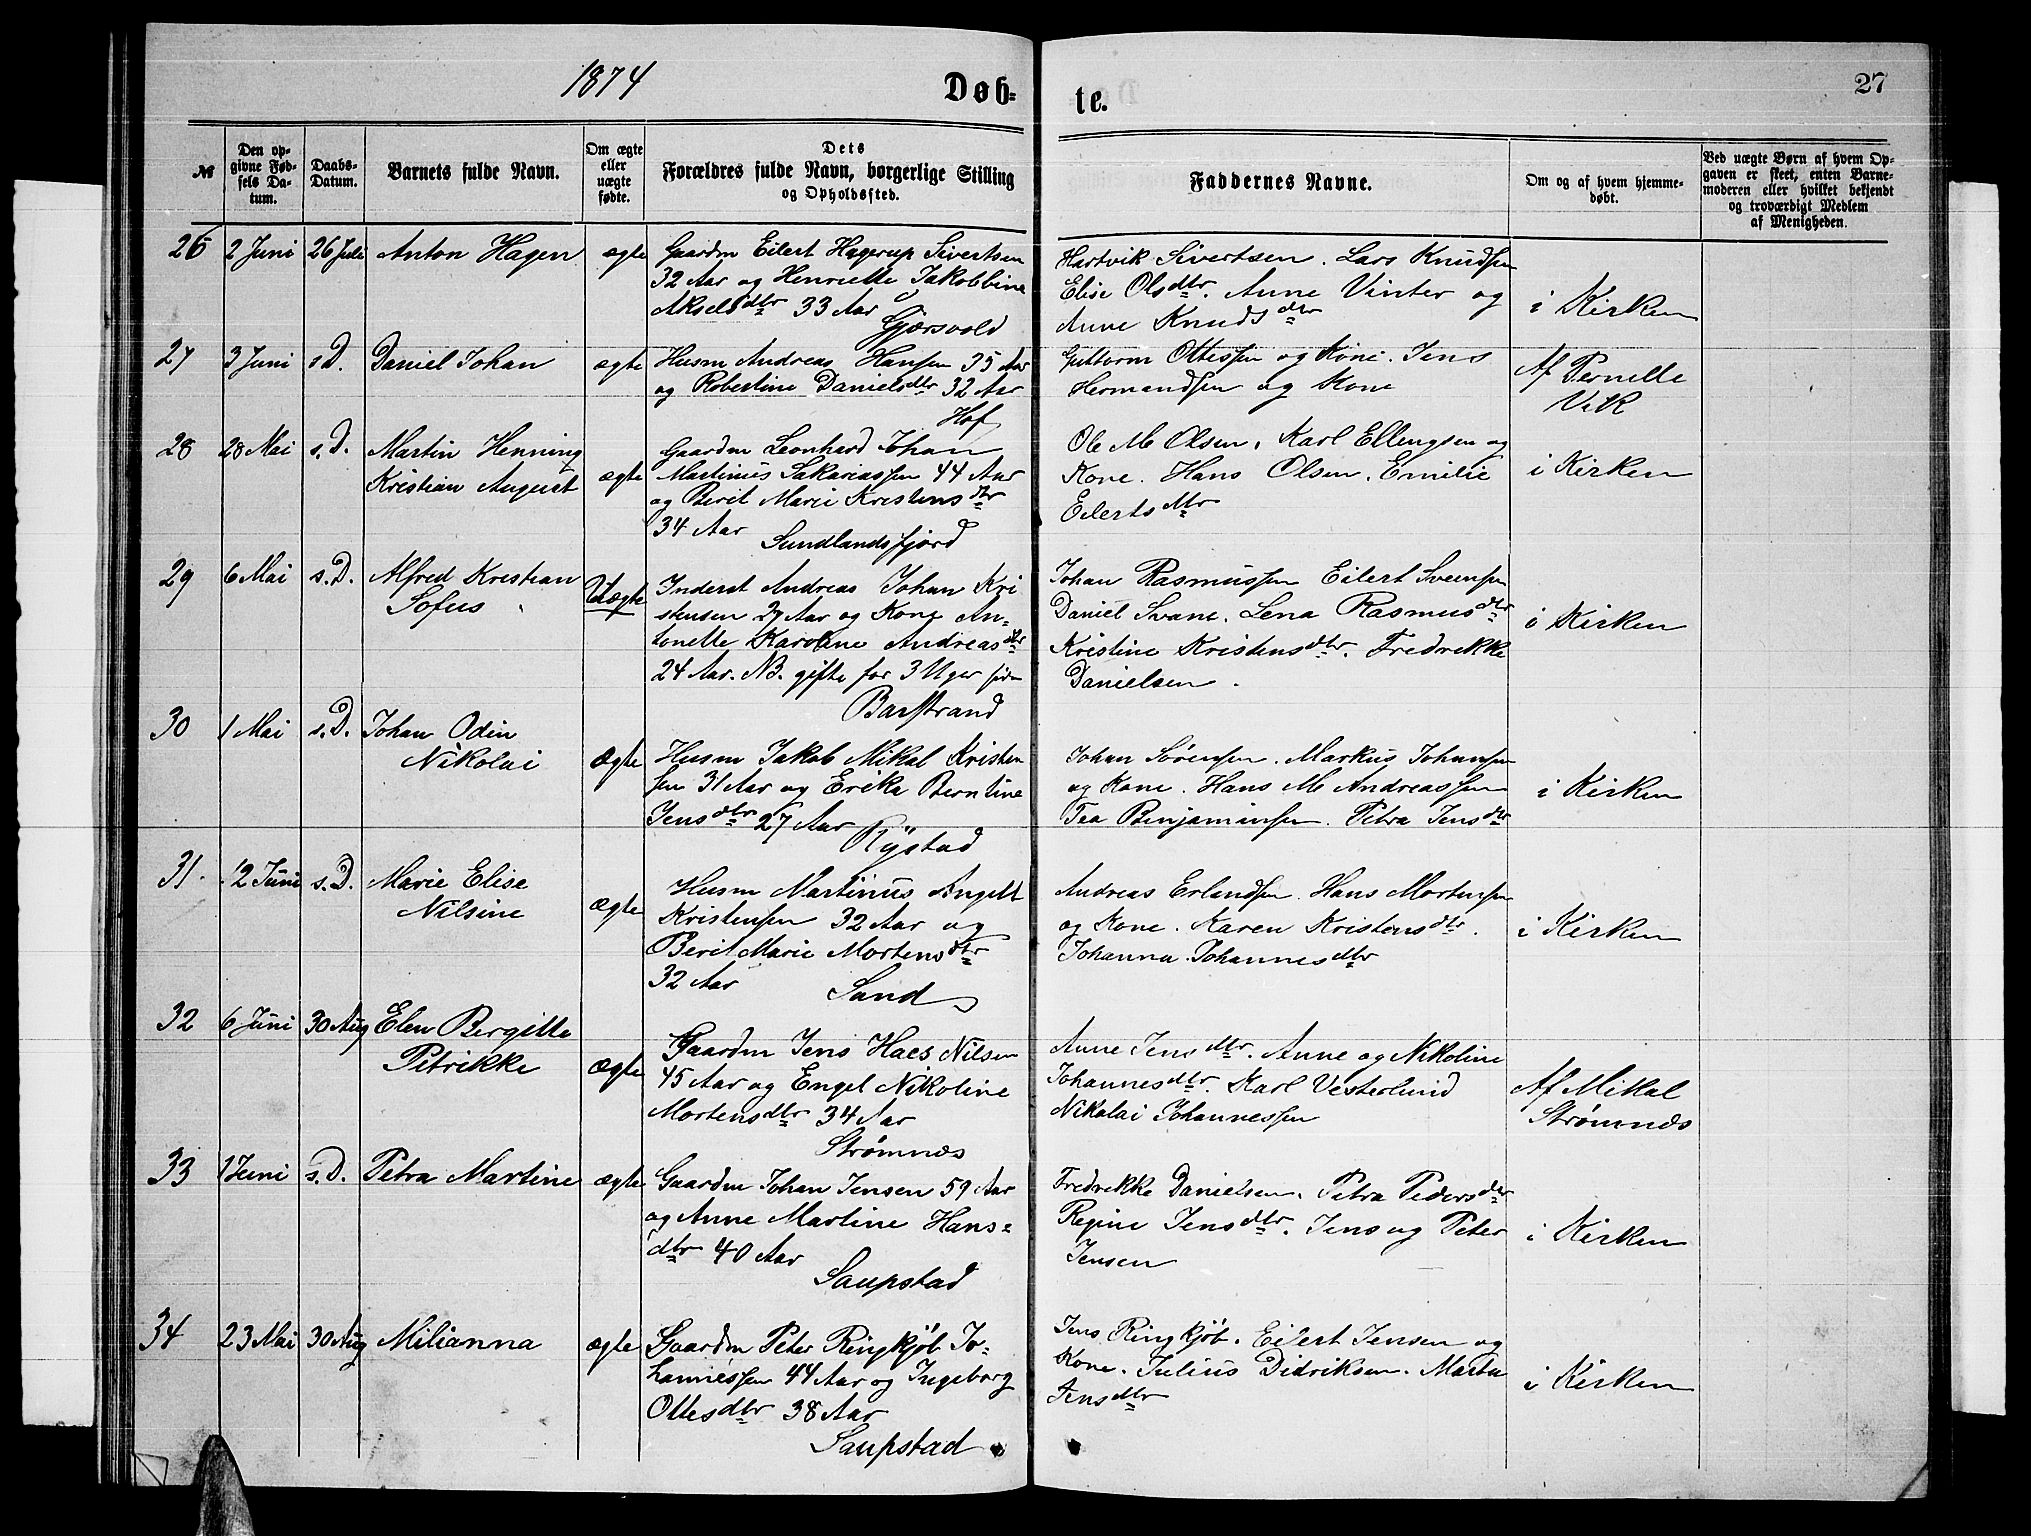 1874
Døb-
te.
27
№
Den op-
givne Fød-
sels Da-
tum.
Daabs-
Datum.
Barnets fulde Navn.
Om ægte
eller
uægte
fødte.
Dets
Forældres fulde Navn, borgerlige Stilling
og Opholdssted.
Faddernes Navne.
Om og af hvem hjemme-
døbt.
Ved uægte Børn af hvem Op-
gaven er skeet, enten Barne-
moderen eller hvilket bekjendt
og troværdigt Medlem
af Menigheden.
26
2 Juni
26 Juli
Anton Hagen
ægte
Gaardm Eilert Hagerup Sivertsen
32 Aar og Henriette Jakobbine
Akselsdtr 33 Aar
Gjersvold
Hartvik Sivertsen. Lars Knudsen
Elise Olsdtr. Anne Vinter og
Anne Knudsdtr
i Kirken
27
3 Juni
s D.
Daniel Johan
ægte
Husm Andreas Hansen 35 Aar
og Robertine Danielsdtr 32 Aar
Hof
Guttorm Ottessen og Kone. Jens
Hermandsen og Kone
Af Pernelle
Vik
28
28 Mai
s. D.
Martin Henning
Kristian August
ægte
Gaardm Leonhard Johan
Martinus Sakariassen 44 Aar
og Berit Marie Kristensdtr
34 Aar
Sundlandsfjord
Ole M Olsen. Karl Ellengsen og
Kone. Hans Olsen. Emilie
Eilertsdtr
i Kirken
29
6 Mai
s. D.
Alfred Kristian
Sofus
Uægte
Inderst Andreas Johan Kri
stensen 29 Aar og Kone An-
tonette Karoline Andreasdtr
24 Aar. NB. gifte for 3 Uger siden
Barstrand
Johan Rasmussen Eilert Svensen
Daniel Svane. Lena Rasmusdtr
Kristine Kristensdtr. Fredrekke
Danielsen.
i Kirken
30
1 Mai
s. D.
Johan Odin
Nikolai
Ægte
Husm Jakob Mikal Kristen
sen 31 Aar og Erika Berntine
Jensdtr 27 Aar
Rystad
Johan Sørensen. Markus Johansen
og Kone. Hans M Andreassen
Tea Benjaminsen. Petra Jensdtr
i Kirken
31.
12 Juni
s. D.
Marie Elise
Nilsine
ægte
Husm Martinus Angell
Kristensen 32 Aar og
Berit Marie Mortensdtr
32 Aar
Sand
Andreas Erlandsen. Hans Mortensen
og Kone. Karen Kristensdtr.
Johanna Johannesdtr
i Kirken
32
6 Juni
30 Aug
Elen Bergitte
Petrikke
ægte
Gaardm Jens Haes Nilsen
45 Aar og Engel Nikoline
Mortensdtr 34 Aar
Strømnes
Anne Jensdtr. Anne og Nikoline
Johannesdtr. Karl Vesterlund
Nikolai Johannessen
Af Mikal
Strømnes
33
1 Juni
s. D.
Petra Martine
ægte
Gaardm Johan Jensen 59 Aar
og Anne Martine Hans-
dtr 40 Aar
Saupstad
Fredrekke Danielsen. Petra Pedersdtr
Regine Jensdtr. Jens og Peter
Jensen
i Kirken
34
23 Mai
30 Aug
Milianna
ægte
Gaardm Peter Ringkjøb Jo-
hannessen 44 Aar og Ingeborg
Ottesdtr 38 Aar
Saupstad
Jens Ringkjøb. Eilert Jensen og
Kone. Julius Didriksen. Marta
Jensdtr
i Kirken